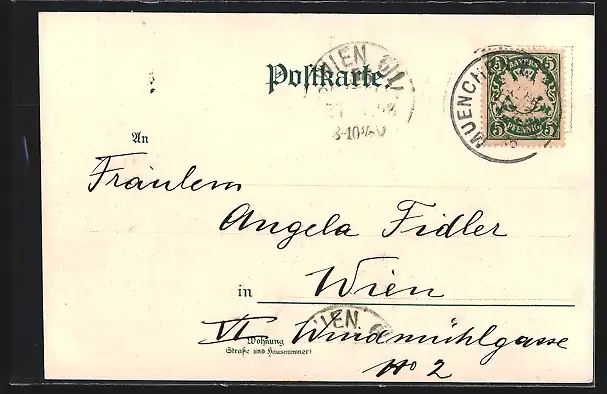 WIEN 6/1
Postkarte.
MUENCHEN
5 BAYERN 5
5 PFENNIG 5
An
Fräulein
Angela Fidler
in Wien
WIEN. 6
VI. Windmühlgasse
Wohnung
(Straße und Hausnummer)
No 2